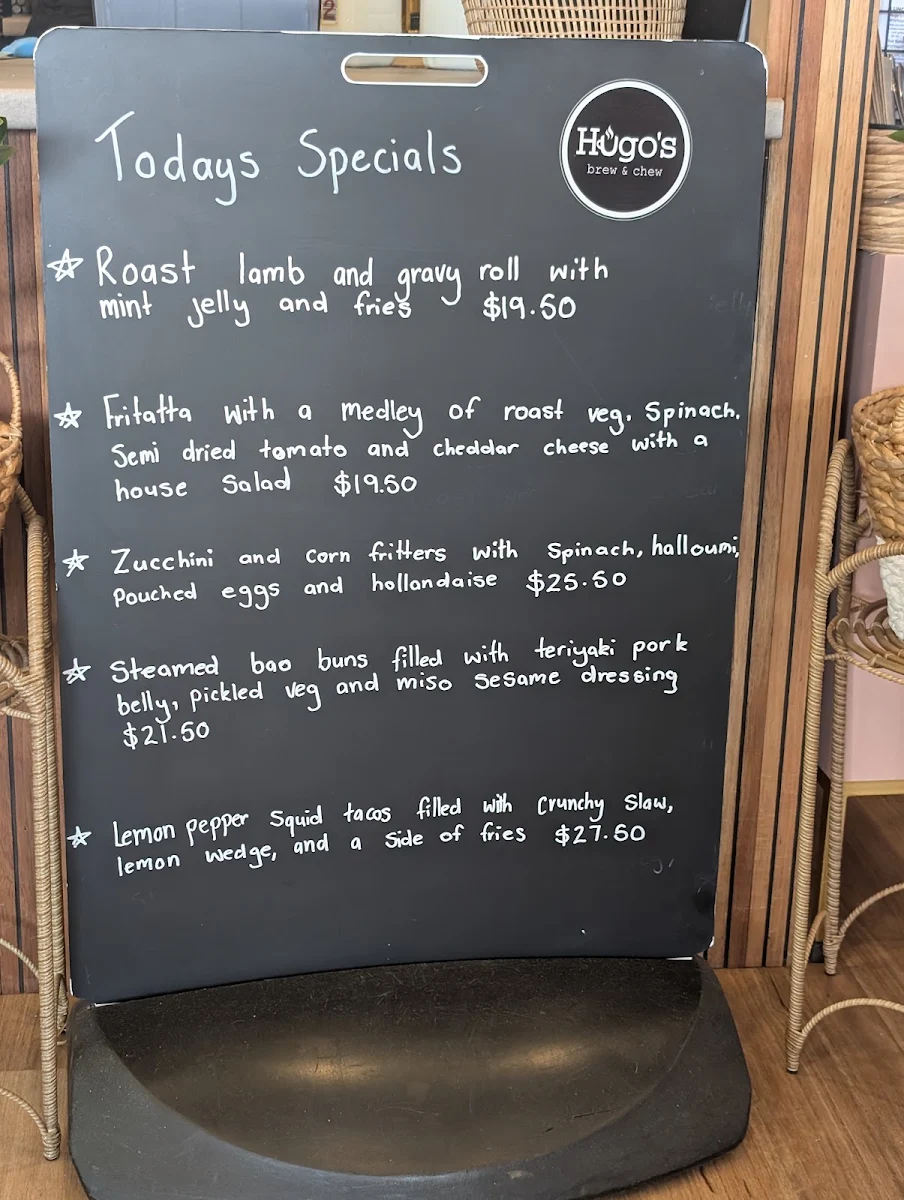 Todays Specials
Hugo's
brew & chew
Roast lamb and gravy roll with
mint jelly and fries $19.50
Fritatta with a medley of roast veg, Spinach.
Semi dried tomato and cheddar cheese with a
house Salad $19.50
Zucchini and corn fritters with Spinach, halloumi,
Pouched eggs and hollandaise $25.50
Steamed bao buns filled with teriyaki pork
belly, pickled veg and miso sesame dressing
$21.50
Lemon pepper Squid tacos filled with Crunchy Slaw,
lemon wedge, and a Side of fries $27.50